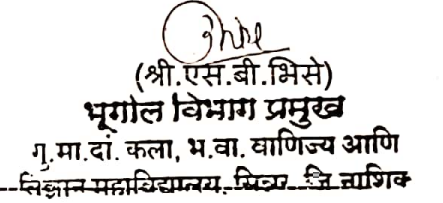 (श्री.एस.बी.भिसे)
भूगोल विभाग प्रमुख
गु.मा.दां. कला, भ.वा. वाणिज्य आणि
विज्ञान महाविद्यालय, सिन्नर, जि नाशिक